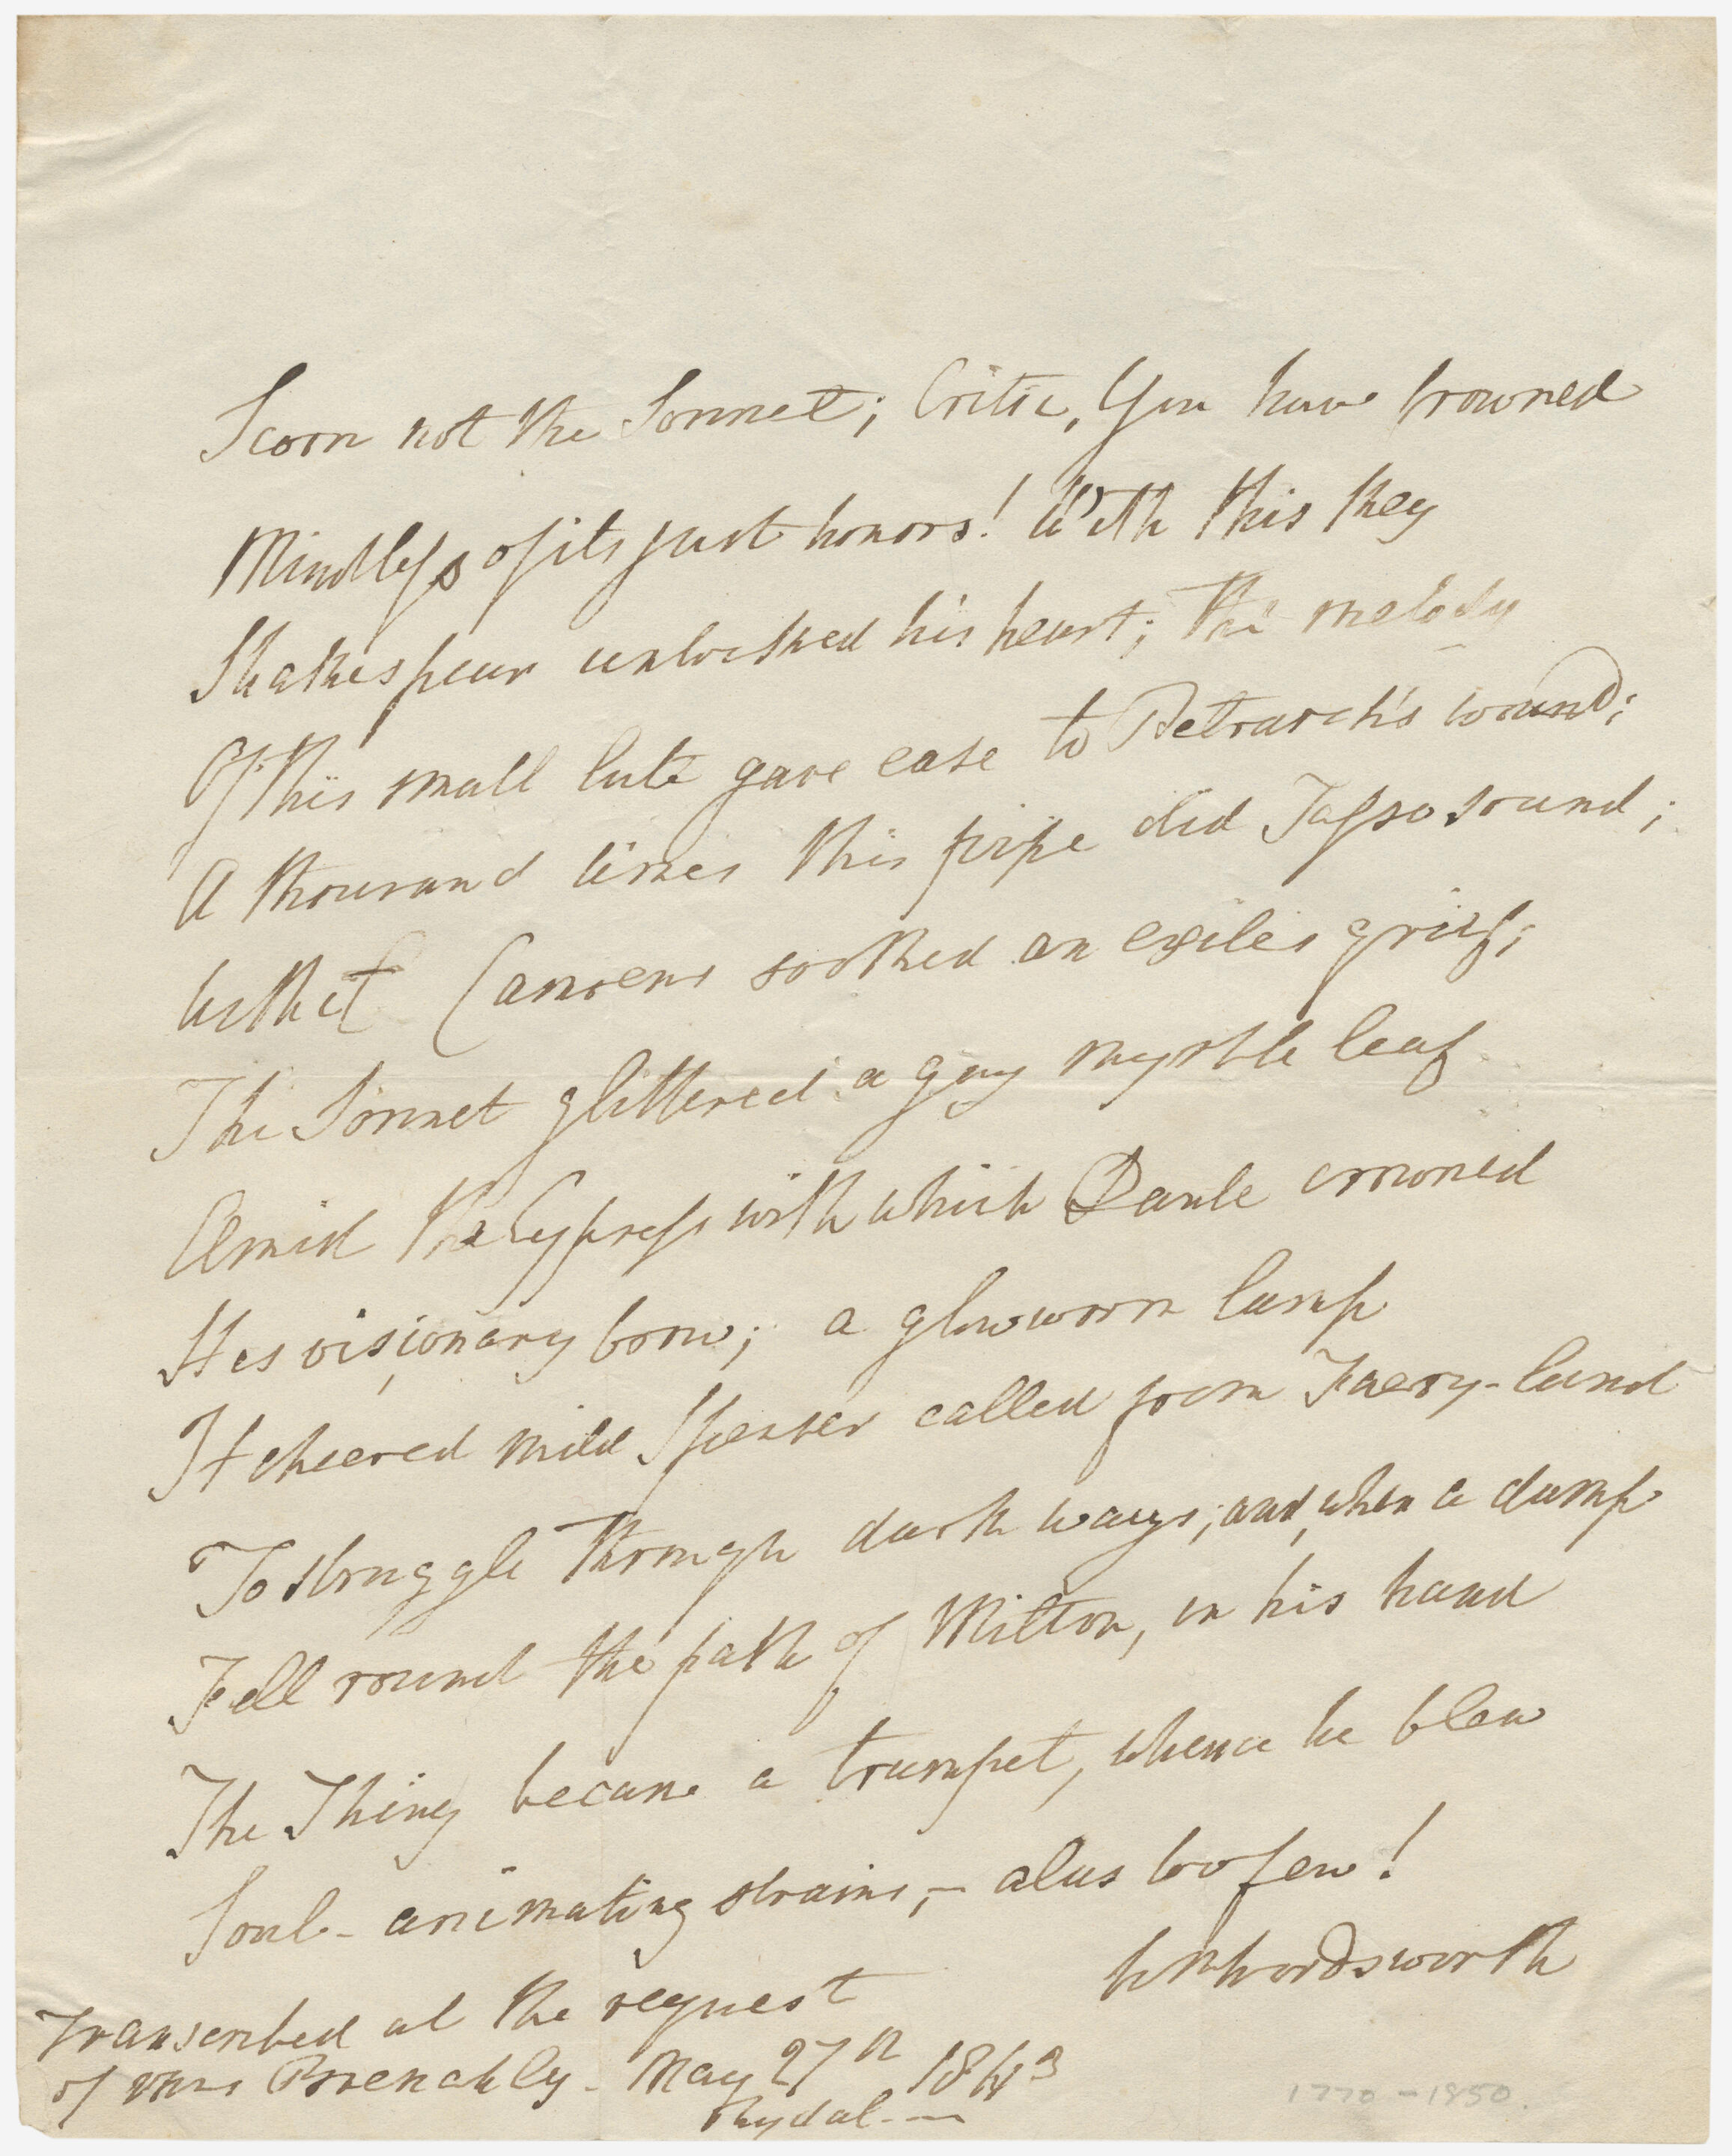 Scorn not the Sonnet; Critic, You have frowned
Mindless of its just honors! With this key
Shakespear unlocked his heart; the melody
Of this small lute gave ease to Petrarch's wound;
A thousand times this pipe did Tasso sound;
With it Camoens soothed an exiles grief;
The Sonnet glittered a gay myrtle leaf
Amid the Cypress with which Dante crowned
His visionary brow; a glowworm lamp
It cheered mild Spenser called from Faery-land
To struggle through dark ways; and, when a damp
Fell round the path of Milton, in his hand
The Thing became a trumpet, whence he blew
Soul-animating strains,— alas too few!
Wm Wordsworth
Transcribed at the request
of Mrs Brenchley- May 27th 1843
Rydal.—
1770-1850.